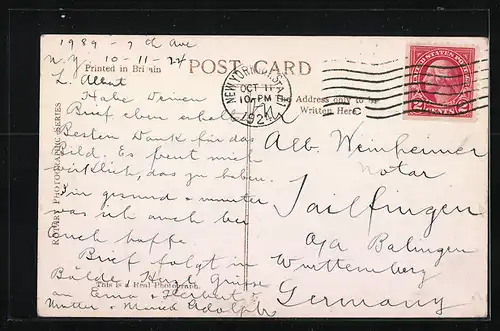 1989 - 7th Ave
N.Y. 10-11-24
Printed in Britain
POST CARD
L. Albert
Habe Deinen
Brief eben erhalten
Besten Dank für das
Bild. Es freut mich
wirklich, das zu haben.
Bin gesund & munter
was ich auch bei
euch hoffe.
Brief folgt in
Bälde. Herzl. Grüsse
an Erna & Herbert &
Mutter & Adolph
ROTARY PHOTOGRAPHIC SERIES
This is a Real Photograph
NEW YORK, N.Y. STA.
OCT 11
10 PM
1924
The Address only to be
Written Here
UNITED STATES POSTAGE
2 CENTS 2
Alb. Weinheimer
Notar
Tailfingen
o/a Balingen
Wurttemberg
Germany